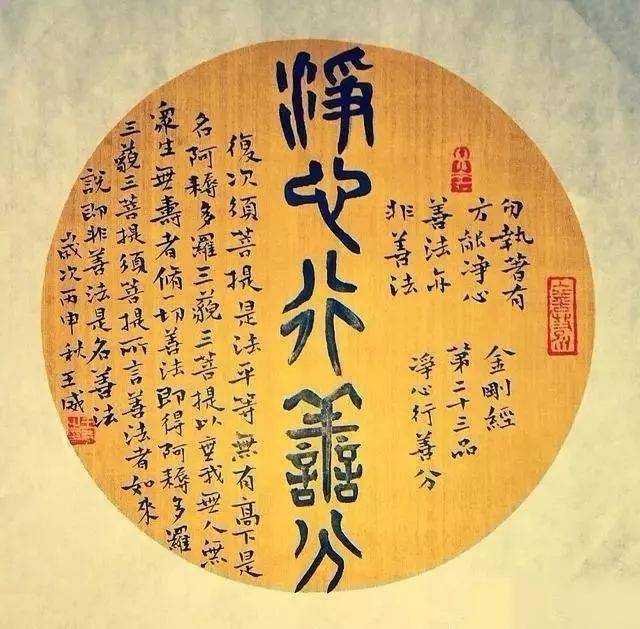 勿執著有
方能淨心
善法亦
非善法
金剛經
第二十三品
淨心行善分
淨心行善分
復次須菩提是法平等無有高下是
名阿耨多羅三藐三菩提以無我無人無
衆生無壽者脩一切善法即得阿耨多羅
三藐三菩提須菩提所言善法者如來
說即非善法是名善法
歲次丙申秋王威